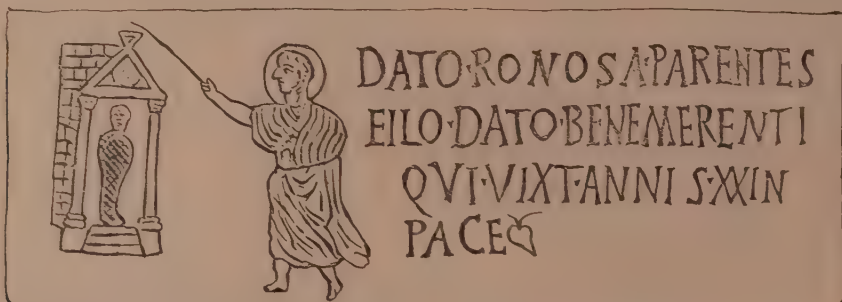 DATO·RONOSA·PARENTES
EILO·DATO·BENEMERENTI
QVI·VIXT·ANNIS·XXIN
PACE